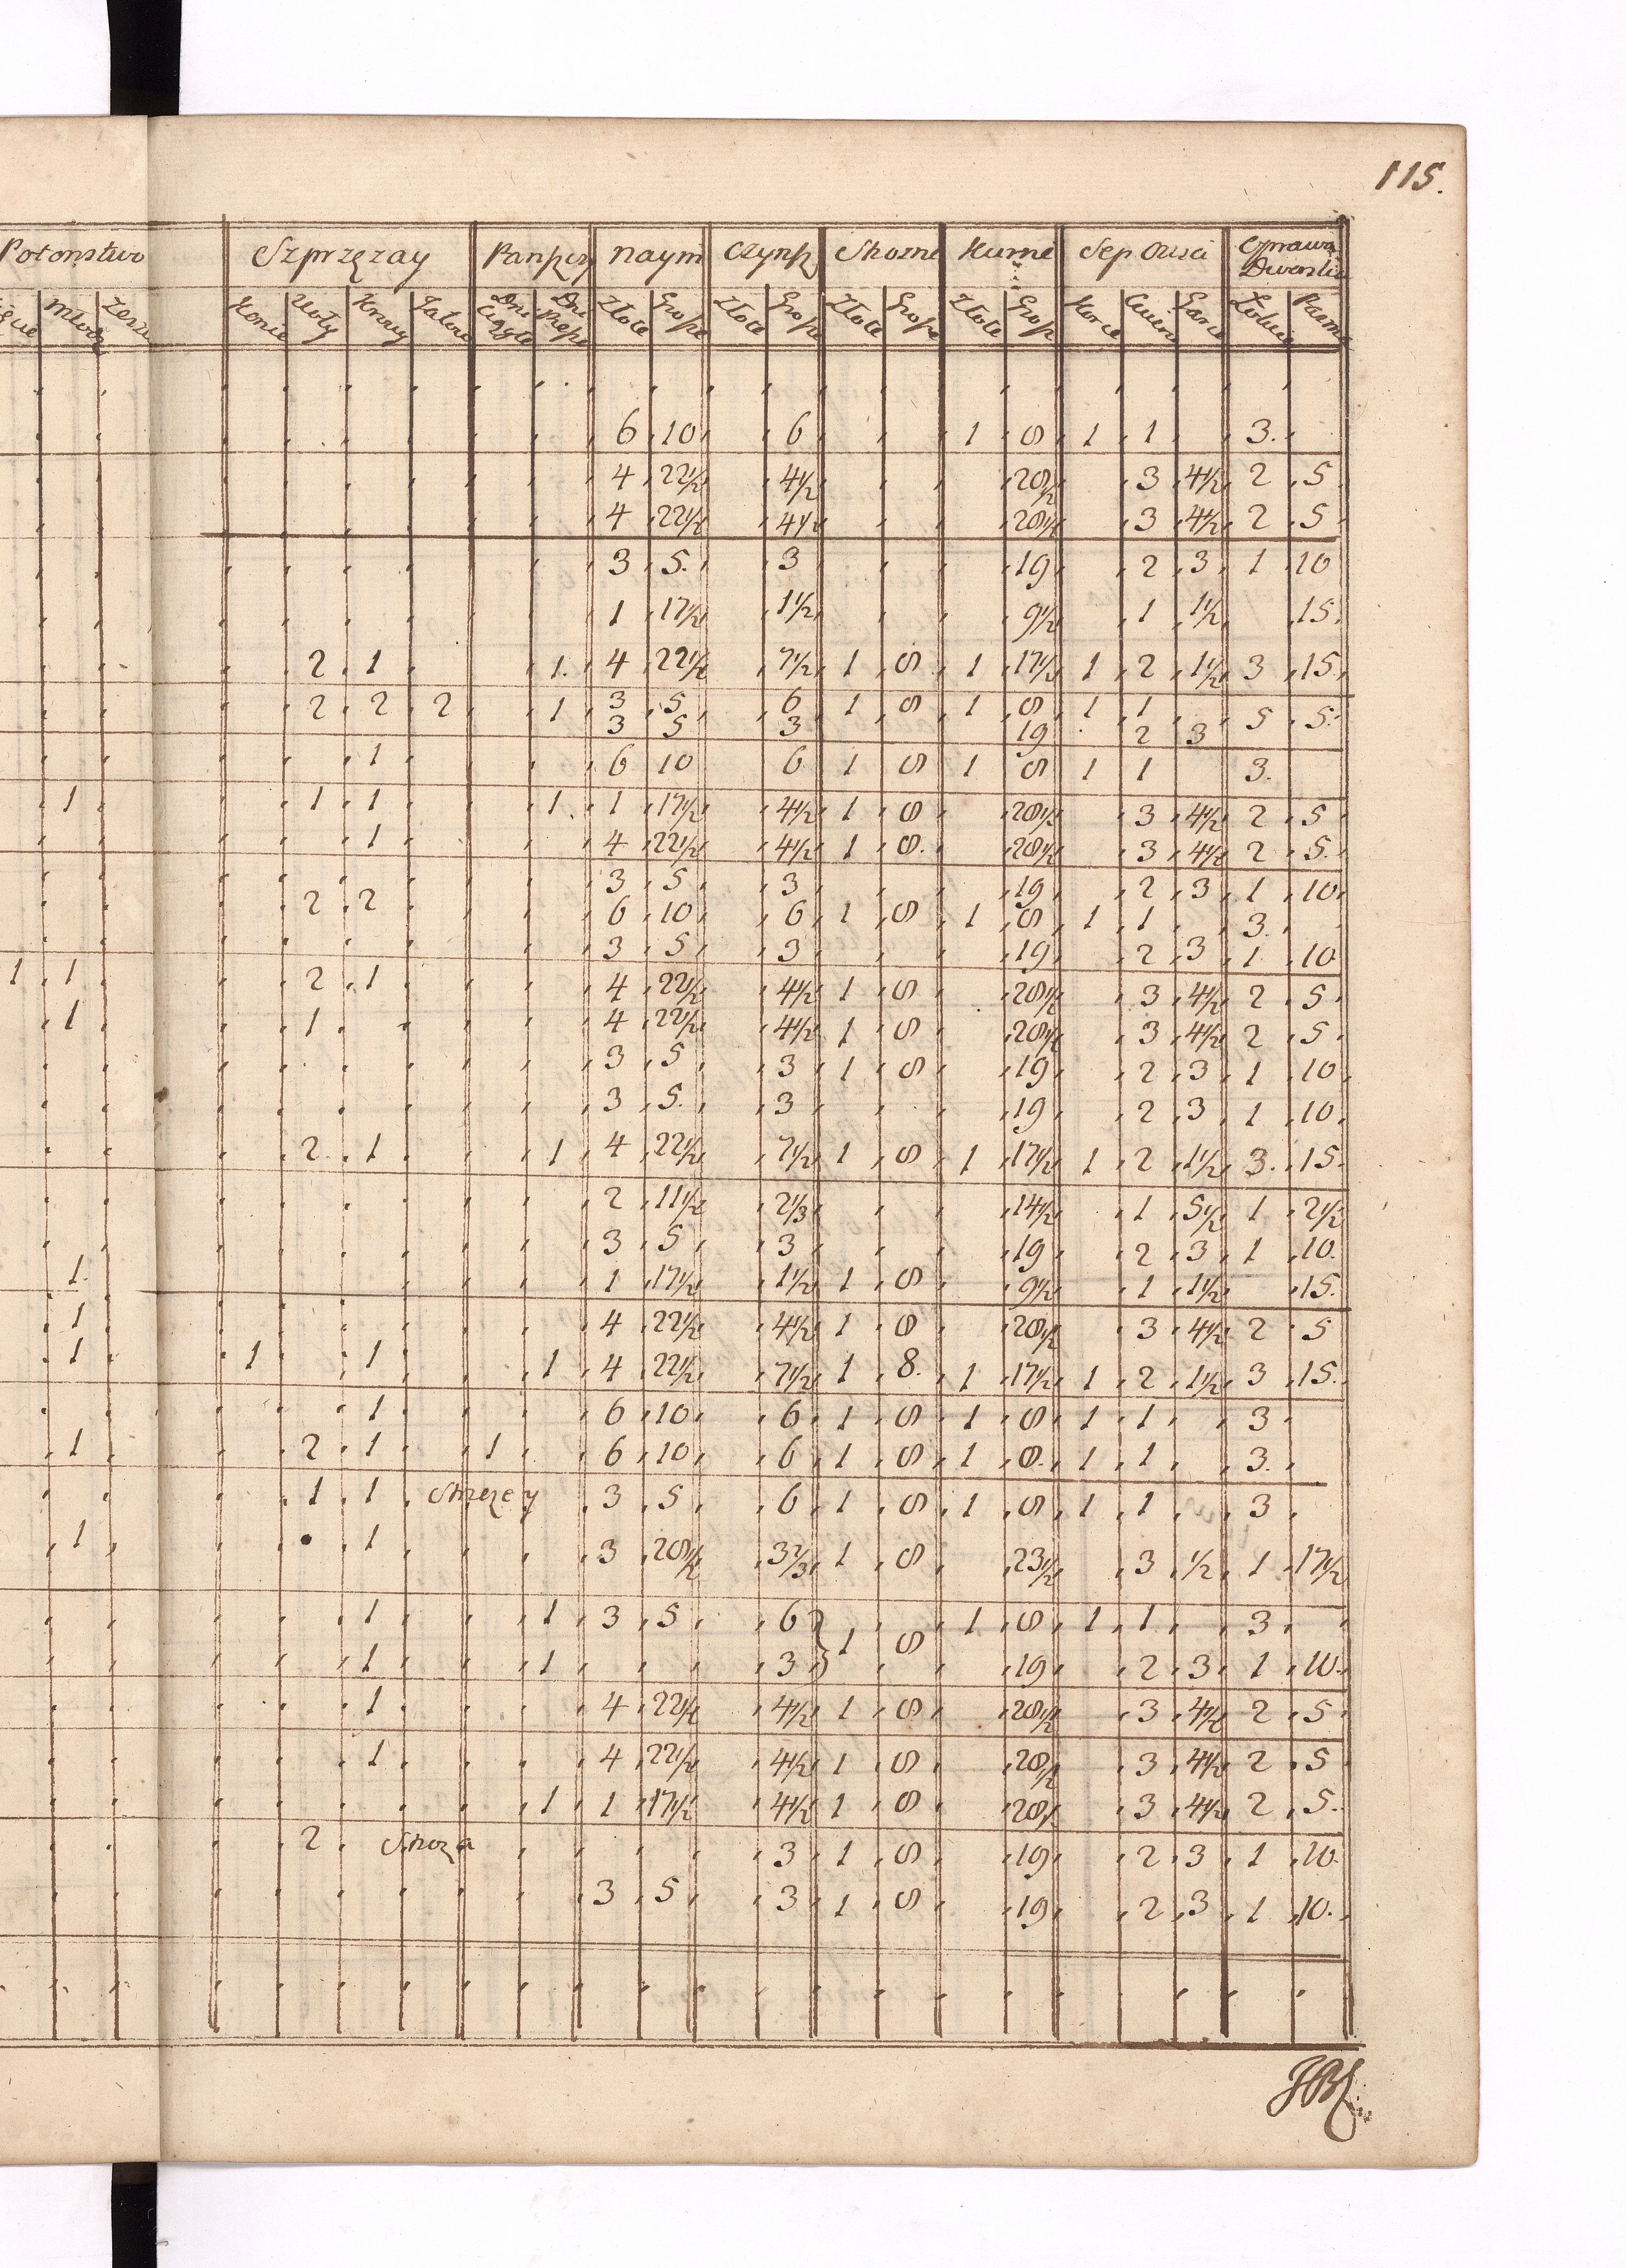 115.
Potomstwo Szprzęzay Panszcz Naym Czynsz Skozne Kurne Sep Owsa Oprawa Dworska
Młodz Konie Woły Krowy Jałow Dni Ciągłe Dni Piesze Złote Grosze Złote Grosze Złote Grosze Złote Grosze Korce Garce Pasma
6 10 6 1 8 1 1 3.
4 22½ 4½ 28½ 3 4½ 2 5
4 22½ 4½ 28½ 3 4½ 2 5
3 5. 3 19 2 3 1 10
1 17½ 1½ 9½ 1 1½ 15.
2 1 1. 4 22½ 7½ 1 8 1 17½ 1 2 1½ 3 15
2 2 2 1 3 5 6 1 8 1 8 1 1 5 5.
3 5 3 19 2 3
1 6 10 6 1 8 1 8 1 1 3.
1 1 1 1. 1 17½ 4½ 1 8 28½ 3 4½ 2 5
1 4 22½ 4½ 1 8. 28½ 3 4½ 2 5.
3 5 3 19 2 3 1 10
2 2 6 10 6 1 8 1 8 1 1 3.
3 5 3 19 2 3 1 10
1 1 2 1 4 22½ 4½ 1 8 28½ 3 4½ 2 5
1 1 4 22½ 4½ 1 8 28½ 3 4½ 2 5
3 5 3 1 8 19 2 3 1 10
3 5. 3 19 2 3 1 10
2 1 1 4 22½ 7½ 1 8 1 17½ 1 2 1½ 3. 15.
2 11½ 2⅓ 14½ 1 5½ 1 2½
3 5 3 19 2 3 1 10.
1. 1 17½ 1½ 1 8 9½ 1 1½ 15.
1 4 22½ 4½ 1 8 28½ 3 4½ 2 5
1 1 1 1 4 22½ 7½ 1 8. 1 17½ 1 2 1½ 3 15.
1 6 10 6 1 8 1 8 1 1 3
1 2 1 1 6 10 6 1 8 1 8. 1 1 3.
1 1 Strzezy 3 5 6 1 8 1 8 1 1 3
1 1 3 28½ 3⅔ 1 8 23½ 3 ½ 1 17½
1 1 3 5 6 } 1 8 1 8 1 1 3
1 1 3 19 2 3 1 10.
1 4 22½ 4½ 1 8 28½ 3 4½ 2 5
1 4 22½ 4½ 1 8 28½ 3 4½ 2 5
1 1 17½ 4½ 1 8 28½ 3 4½ 2 5.
2 Stroza 3 1 8 19 2 3 1 10.
3 5 3 1 8 19 2 3 1 10.